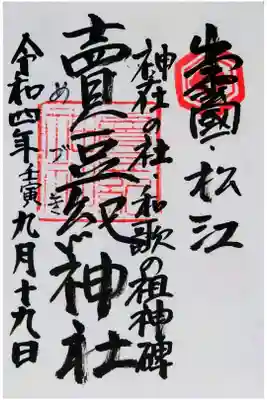 出雲國・松江
神社の社 和歌の祖神碑
賣豆紀神社
めづき
令和四年壬寅九月十九日